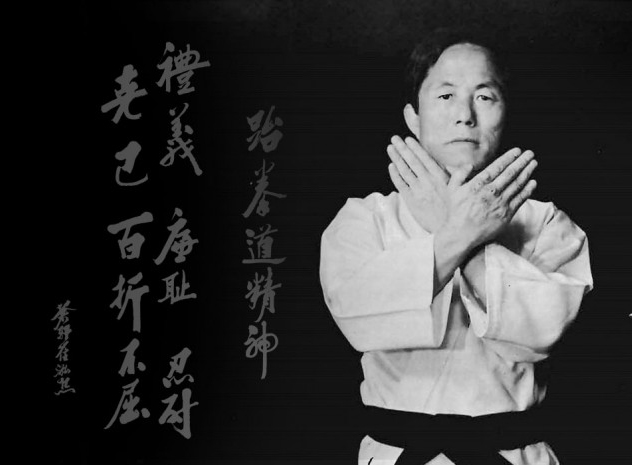 跆拳道精神
禮義 廉耻 忍耐
克己 百折不屈
蒼軒崔泓熙